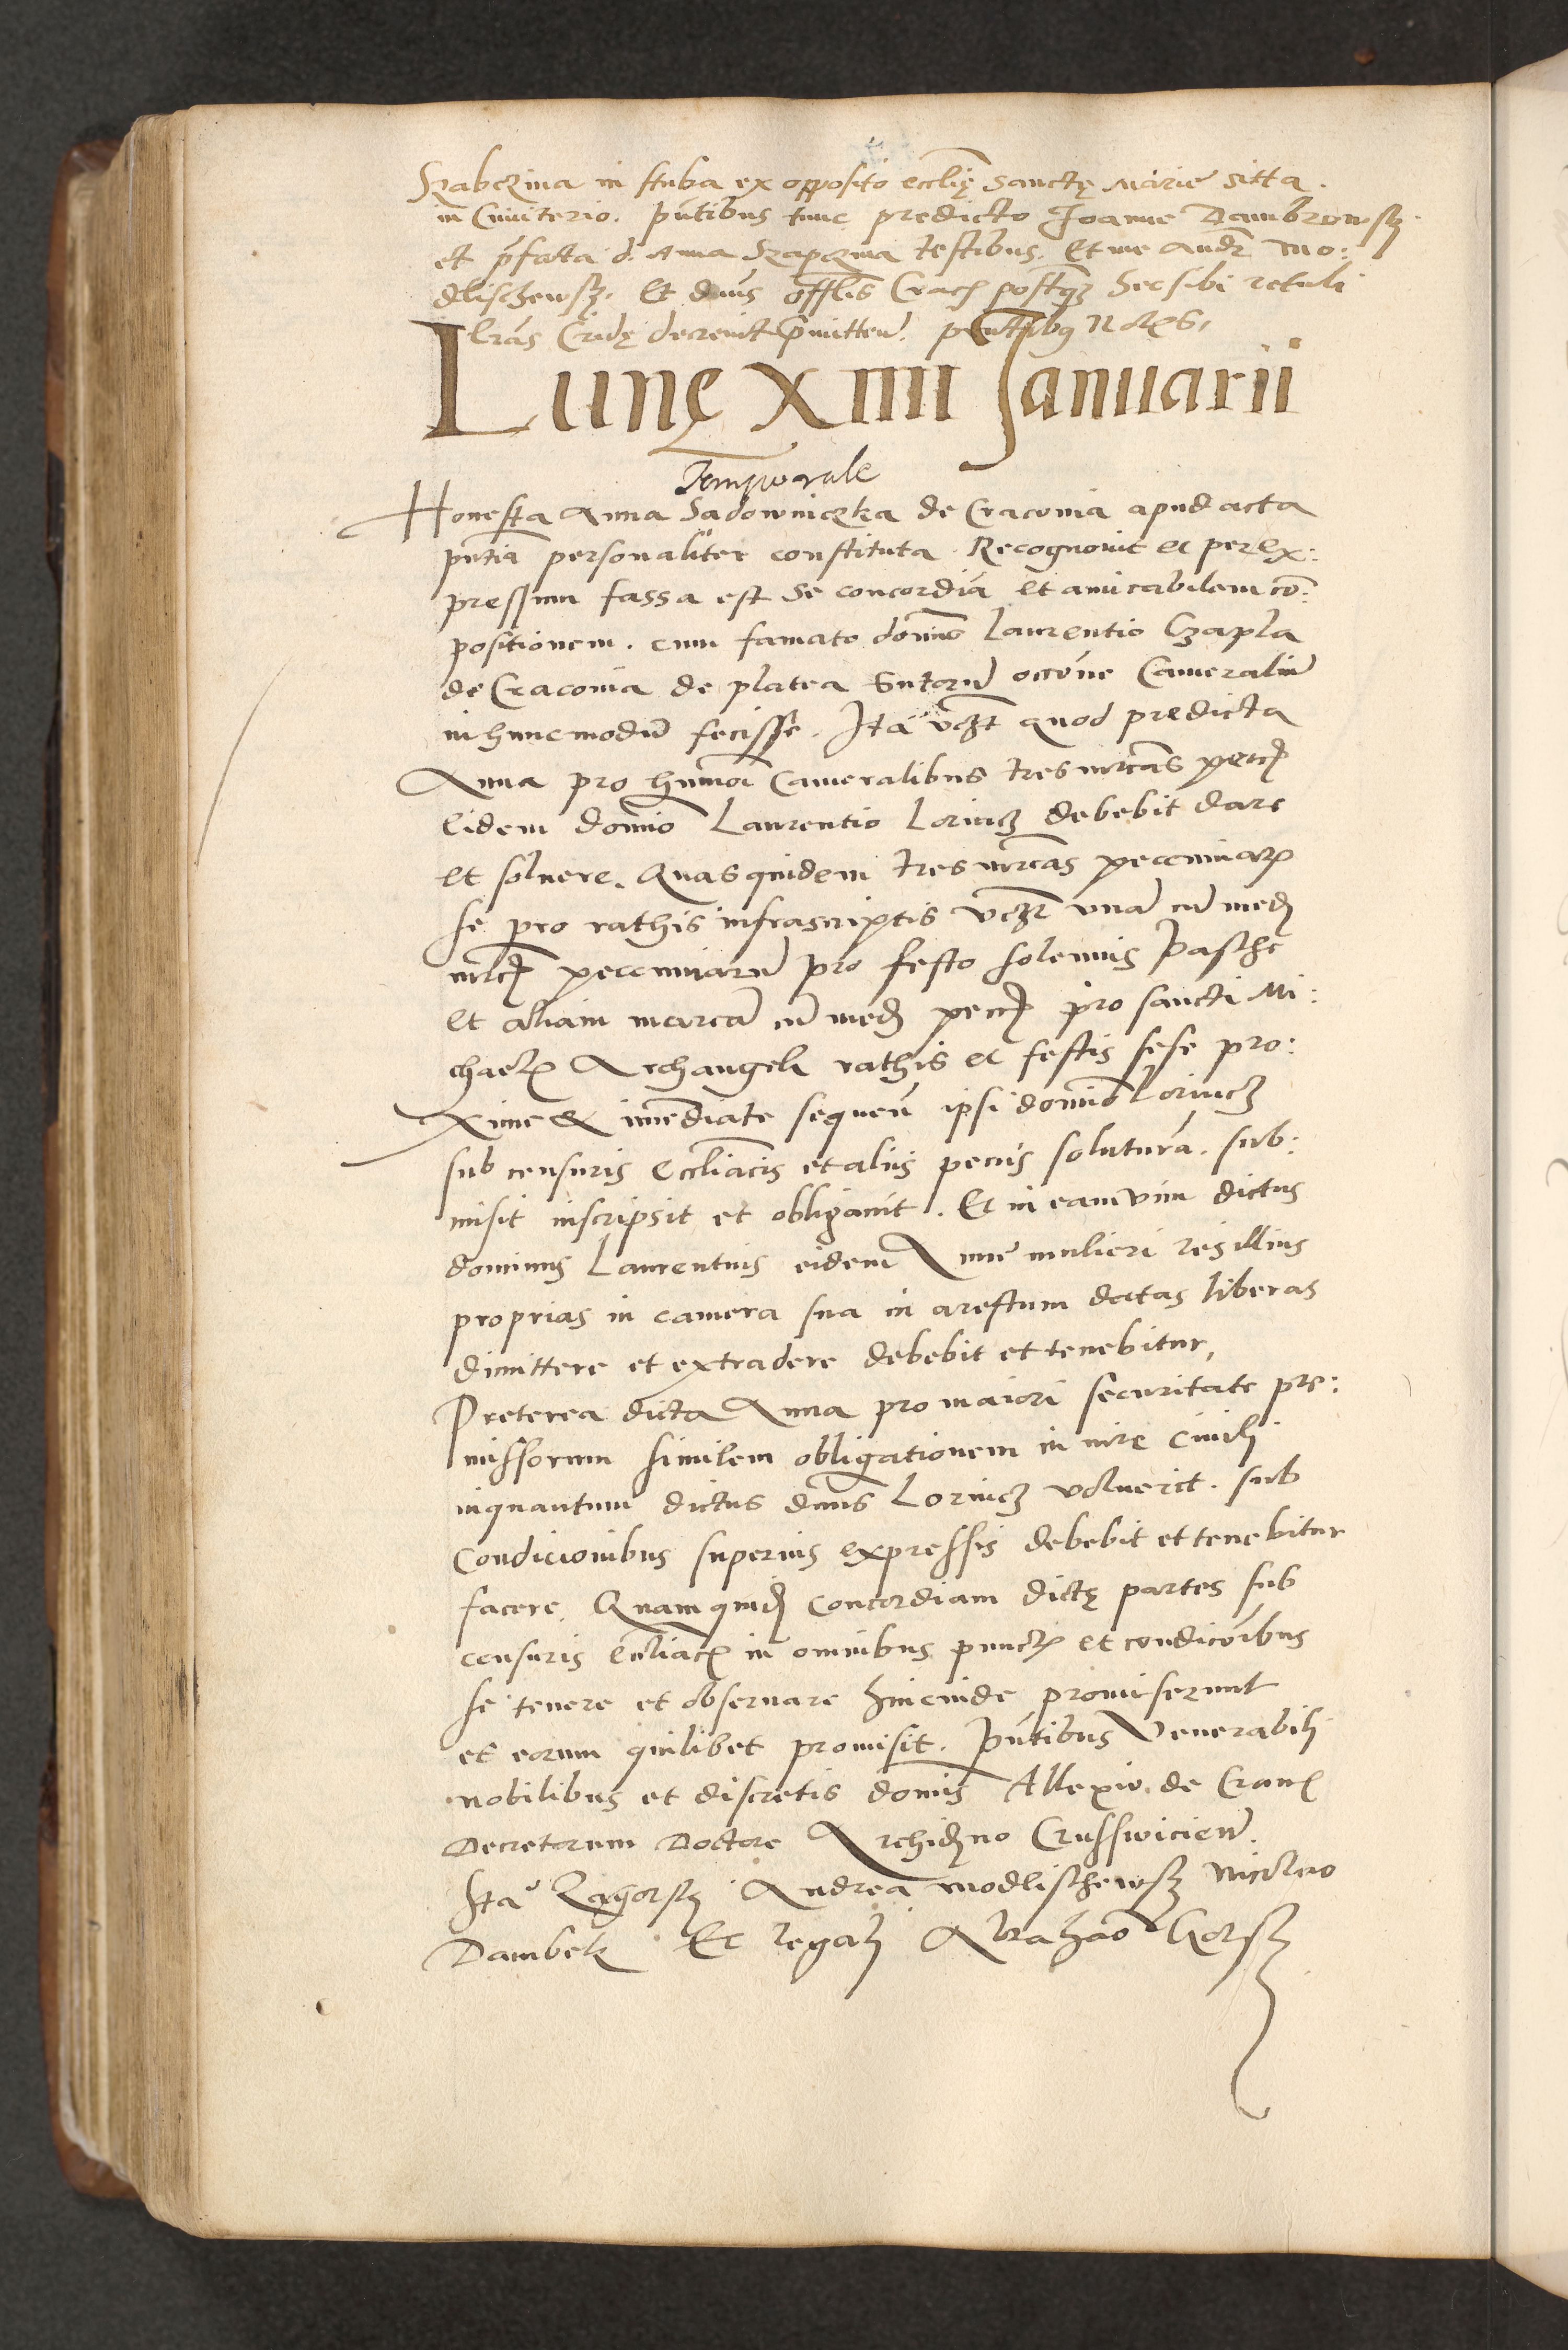 Szabczina in stuba ex opposito ecclię sanctę Marie sitta.
in Cimiterio. pntibus tunc predicto Joanne Dambrowsky.
et pfatta d. Anna Szapczina testibus. Et me Andr Mo:
dlischewsky. Et dnus offlis Crac postqz hec sibi retuli
lras Cridę decreuit pmitten. pntibus
Lunę XIIII Januarii
Temporale
Honesta Anna Sadowniczka de Craconia apud acta
pntia personaliter constituta Recognouit et per ex:
pressum fassa est se concordia et amicabilem co:
positionem. cum famato domino Laurentio Czapla
de Craconia de platea Sutoru occone Cameraliu
in hunc modu fecisse. Ita vczt quod predicta
Anna pro hmoi Cameralibus tres mrcas pecc
eidem domino Laurentio Lorincz debebit dare
et soluere. Quas quidem tres mrcas peccuniar
se pro rathis infrascriptis vczt vna cu med
mrc peccuniaru pro festo solemnis Pasche
et aliam marca cu med pecc pro sancti Mi:
chael Archangeli rathis et festis sese pro:
xime & immediate sequen ipsi domino Lorincz
sub censuris eccliacis et aliis penis solutura. sub:
misit inscripsit et obligauit. Et in eam vim dictus
dominus Laurentius eidem Anne mulieri res illius
proprias in camera sua in arestum datas liberas
dimittere et extradere debebit et tenebitur,
Preterea dicta Anna pro maiori securitate pre:
missorum similem obligationem in iure ciuili
inquantum dictus dnus Lorincz voluerit. sub
condicionibus superius expressis debebit et tenebitur
facere. Quam quid concordiam dictę partes sub
censuris eccliac in omnibus punct et condicoibus
se tenere et obseruare hincinde promiserunt
et eorum quilibet promisit. Pntibus Venerabili
nobilibus et discretis domis Allexio de Crac
Decretorum Doctore Archidno Crusswicien.
Sta Zagorsky Andrea Modlischewsky Nicolao
Dambek Et regali Abrahao Gorsky